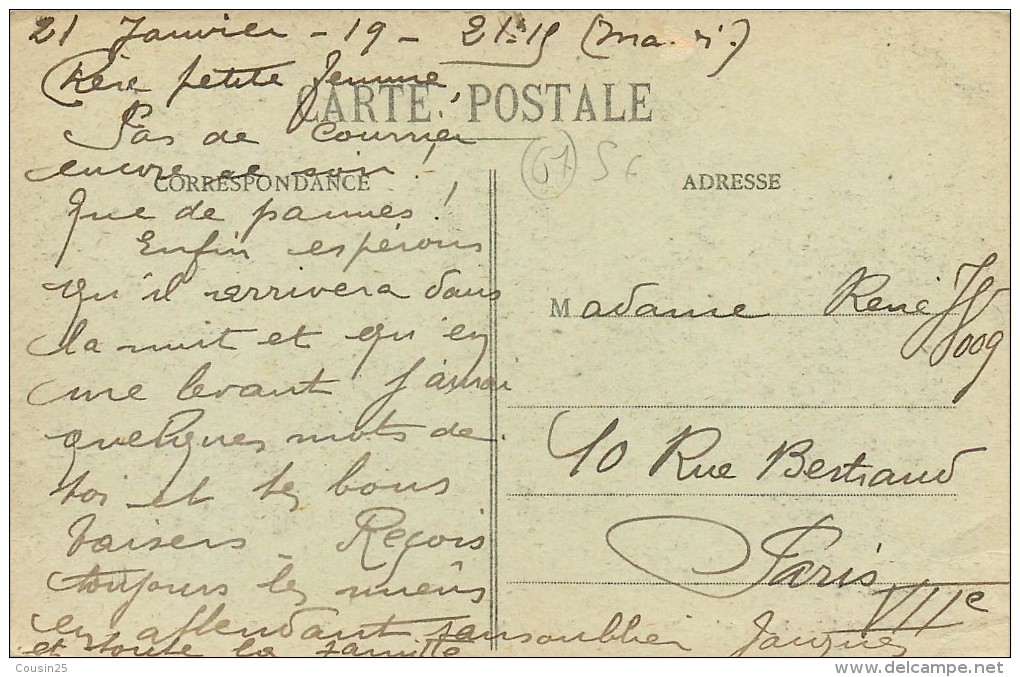 21 Janvier - 19 - 21h15 (Mardi.)
Chère petite femme,
CARTE POSTALE
Pas de courrier
encore ce soir !
CORRESPONDANCE
ADRESSE
Que de pannes !
Enfin espérons
qu'il arrivera dans
la nuit et qu'en
me levant j'aurai
quelques mots de
toi et tes bons
baisers. Reçois
toujours les miens
en attendant sans oublier Jacques
et toute la famille
Madame René Hoog
10 Rue Bertrand
Paris
VIIe
Cousin25
www.delcampe.net